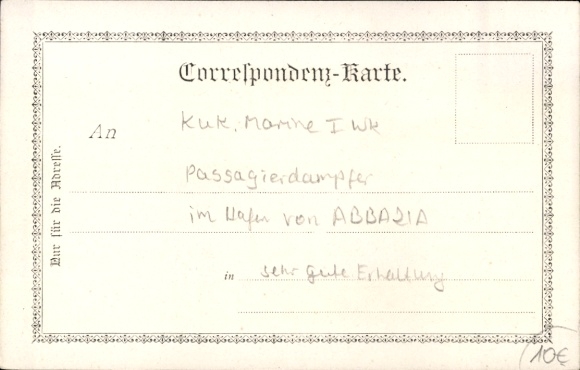 Correspondenz-Karte.
An
KuK. Marine I Wk
Passagierdampfer
im Hafen von ABBAZIA
in sehr gute Erhaltung
Nur für die Adresse.
10€